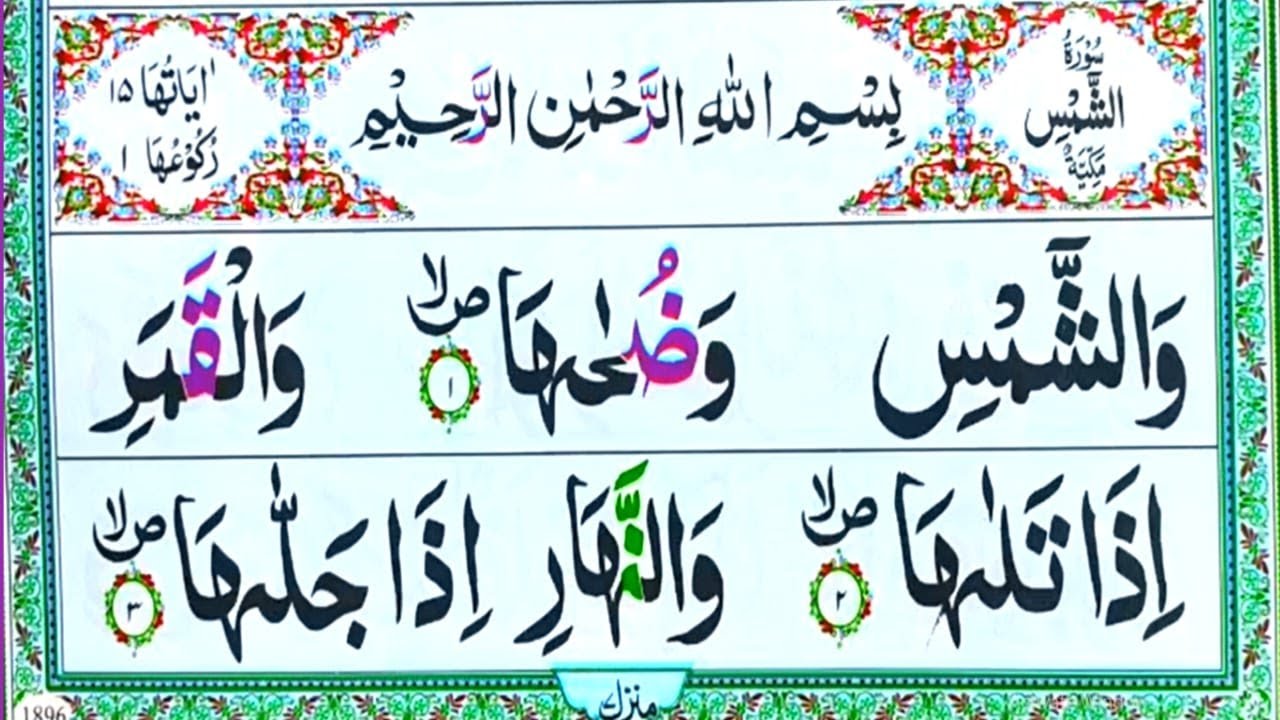 سُوْرَةُ
الشَّمْسِ
مَكِّيَّةٌ
بِسْمِ اللّٰهِ الرَّحْمٰنِ الرَّحِيْمِ
اٰيَاتُهَا ۱۵
رُكُوْعُهَا ۱
وَالشَّمْسِ وَضُحٰىهَا ۙص ۱ وَالْقَمَرِ
اِذَا تَلٰىهَا ۙص ۲ وَالنَّهَارِ اِذَا جَلّٰىهَا ۙص ۳
منزل
1896